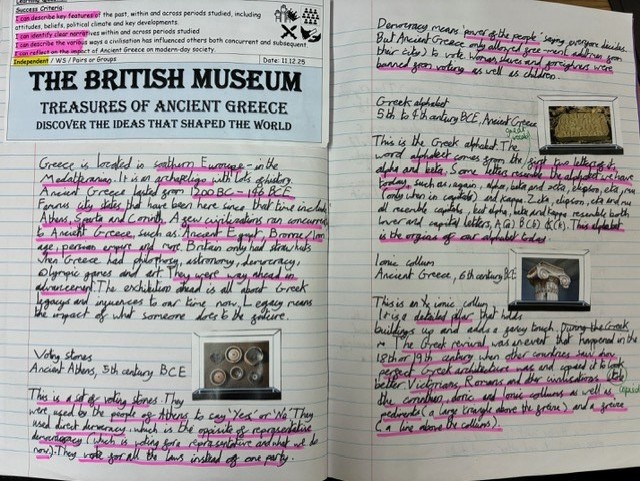 Success Criteria:
I can describe key features of the past, within and across periods studied, including
attitudes, beliefs, political climate and key developments.
I can identify clear narratives within and across periods studied
I can describe the various ways a civilisation has influenced others both concurrent and subsequent.
I can reflect on the impact of Ancient Greece on modern-day society.
Independent / WS / Pairs or Groups
Date: 11.12.25
THE BRITISH MUSEUM
TREASURES OF ANCIENT GREECE
DISCOVER THE IDEAS THAT SHAPED THE WORLD
Greece is located in southern Europe - in the
It is an with lots of history.
Ancient Greece lasted from 1200 BC - 146 BCE
Famous city states that have been here since that time include
Athens, Sparta and Corinth. A few civilizations ran concurrent
to Ancient Greece, such as: Ancient Egypt, Bronze/Iron
age, persian empire and more. Britain only had straw huts
when Greece had philosophy, astronomy, democracy,
Olympic games and art. They were way ahead in
advancement. The exhibition ahead is all about Greek
legacys and influences to our time now. Legacy means
the impact of what someone does to the future.
Voting stones
Ancient Athens, 5th century BCE
This is a set of voting stones. They
were used by the people of Athens to say 'Yes' or 'No'. They
used direct democracy, which is the opposite of representative
(which is voting for a representative and what we do
now). They vote for all the laws instead of one party.
Democracy means 'power of the people' saying everyone decides.
But Ancient Greece only allowed free men, from
their cities) to vote. Women, slaves and foreigners were
banned from voting as well as children.
Greek alphabet
5th to 4th century BCE, Ancient Greece
This is the Greek alphabet. The
word alphabet comes from the first two letters of it,
alpha and beta. Some letters resemble the alphabet we have
today, such as: again, alpha, beta and zeta, epsilon, eta, nu
(only when in capitals) and Kappa. Zeta, epsilon, eta and nu
all resemble capitals, but alpha, beta and kappa resemble both
lower and capital letters, A(a) B(b) & K(k). This alphabet
is the origins of our alphabet today.
Ionic collum
Ancient Greece, 6th century BCE
This is an ionic collum
It is a detailed pillar that holds
buildings up and adds a fancy touch. During the Greek
The Greek revival was an event that happened in the
18th or 19th century when other countries saw how
perfect Greek architecture was and copied it to look
better. Victorians, Romans and other civilisations
the corinthian, doric and Ionic collumns as well as
pediments (a large triangle above the ) and a
(a line above the collums).